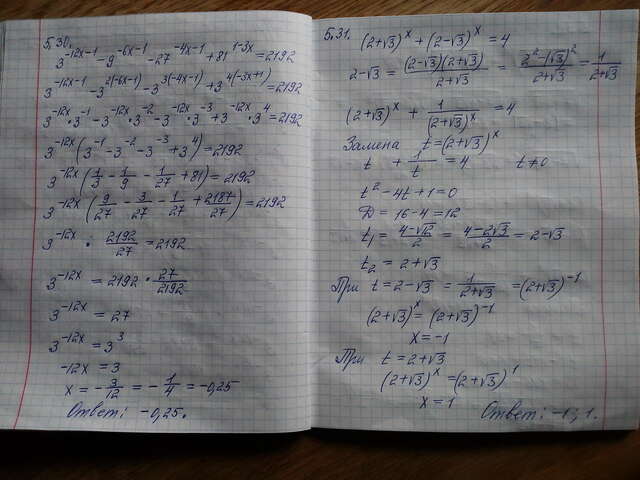 5.30.
3^{-12x-1} - 9^{-6x-1} - 27^{-4x-1} + 81^{1-3x} = 2192
3^{-12x-1} - 3^{2(-6x-1)} - 3^{3(-4x-1)} + 3^{4(-3x+1)} = 2192
3^{-12x} · 3^{-1} - 3^{-12x} · 3^{-2} - 3^{-12x} · 3^{-3} + 3^{-12x} · 3^{4} = 2192
3^{-12x} (3^{-1} - 3^{-2} - 3^{-3} + 3^{4}) = 2192
3^{-12x} (1/3 - 1/9 - 1/27 + 81) = 2192
3^{-12x} (9/27 - 3/27 - 1/27 + 2187/27) = 2192
3^{-12x} · 2192/27 = 2192
3^{-12x} = 2192 · 27/2192
3^{-12x} = 27
3^{-12x} = 3^{3}
-12x = 3
x = -3/12 = -1/4 = -0,25
Ответ: -0,25.
5.31. (2+√3)^x + (2-√3)^x = 4
2-√3 = (2-√3)(2+√3)/2+√3 = 2²-(√3)²/2+√3 = 1/2+√3
(2+√3)^x + 1/(2+√3)^x = 4
Замена t=(2+√3)^x
t + 1/t = 4 t≠0
t² - 4t + 1 = 0
D = 16-4 = 12
t₁ = 4-√12/2 = 4-2√3/2 = 2-√3
t₂ = 2+√3
При t = 2-√3 = 1/2+√3 = (2+√3)^{-1}
(2+√3)^x = (2+√3)^{-1}
x = -1
При t = 2+√3
(2+√3)^x = (2+√3)^1
x = 1 Ответ: -1; 1.